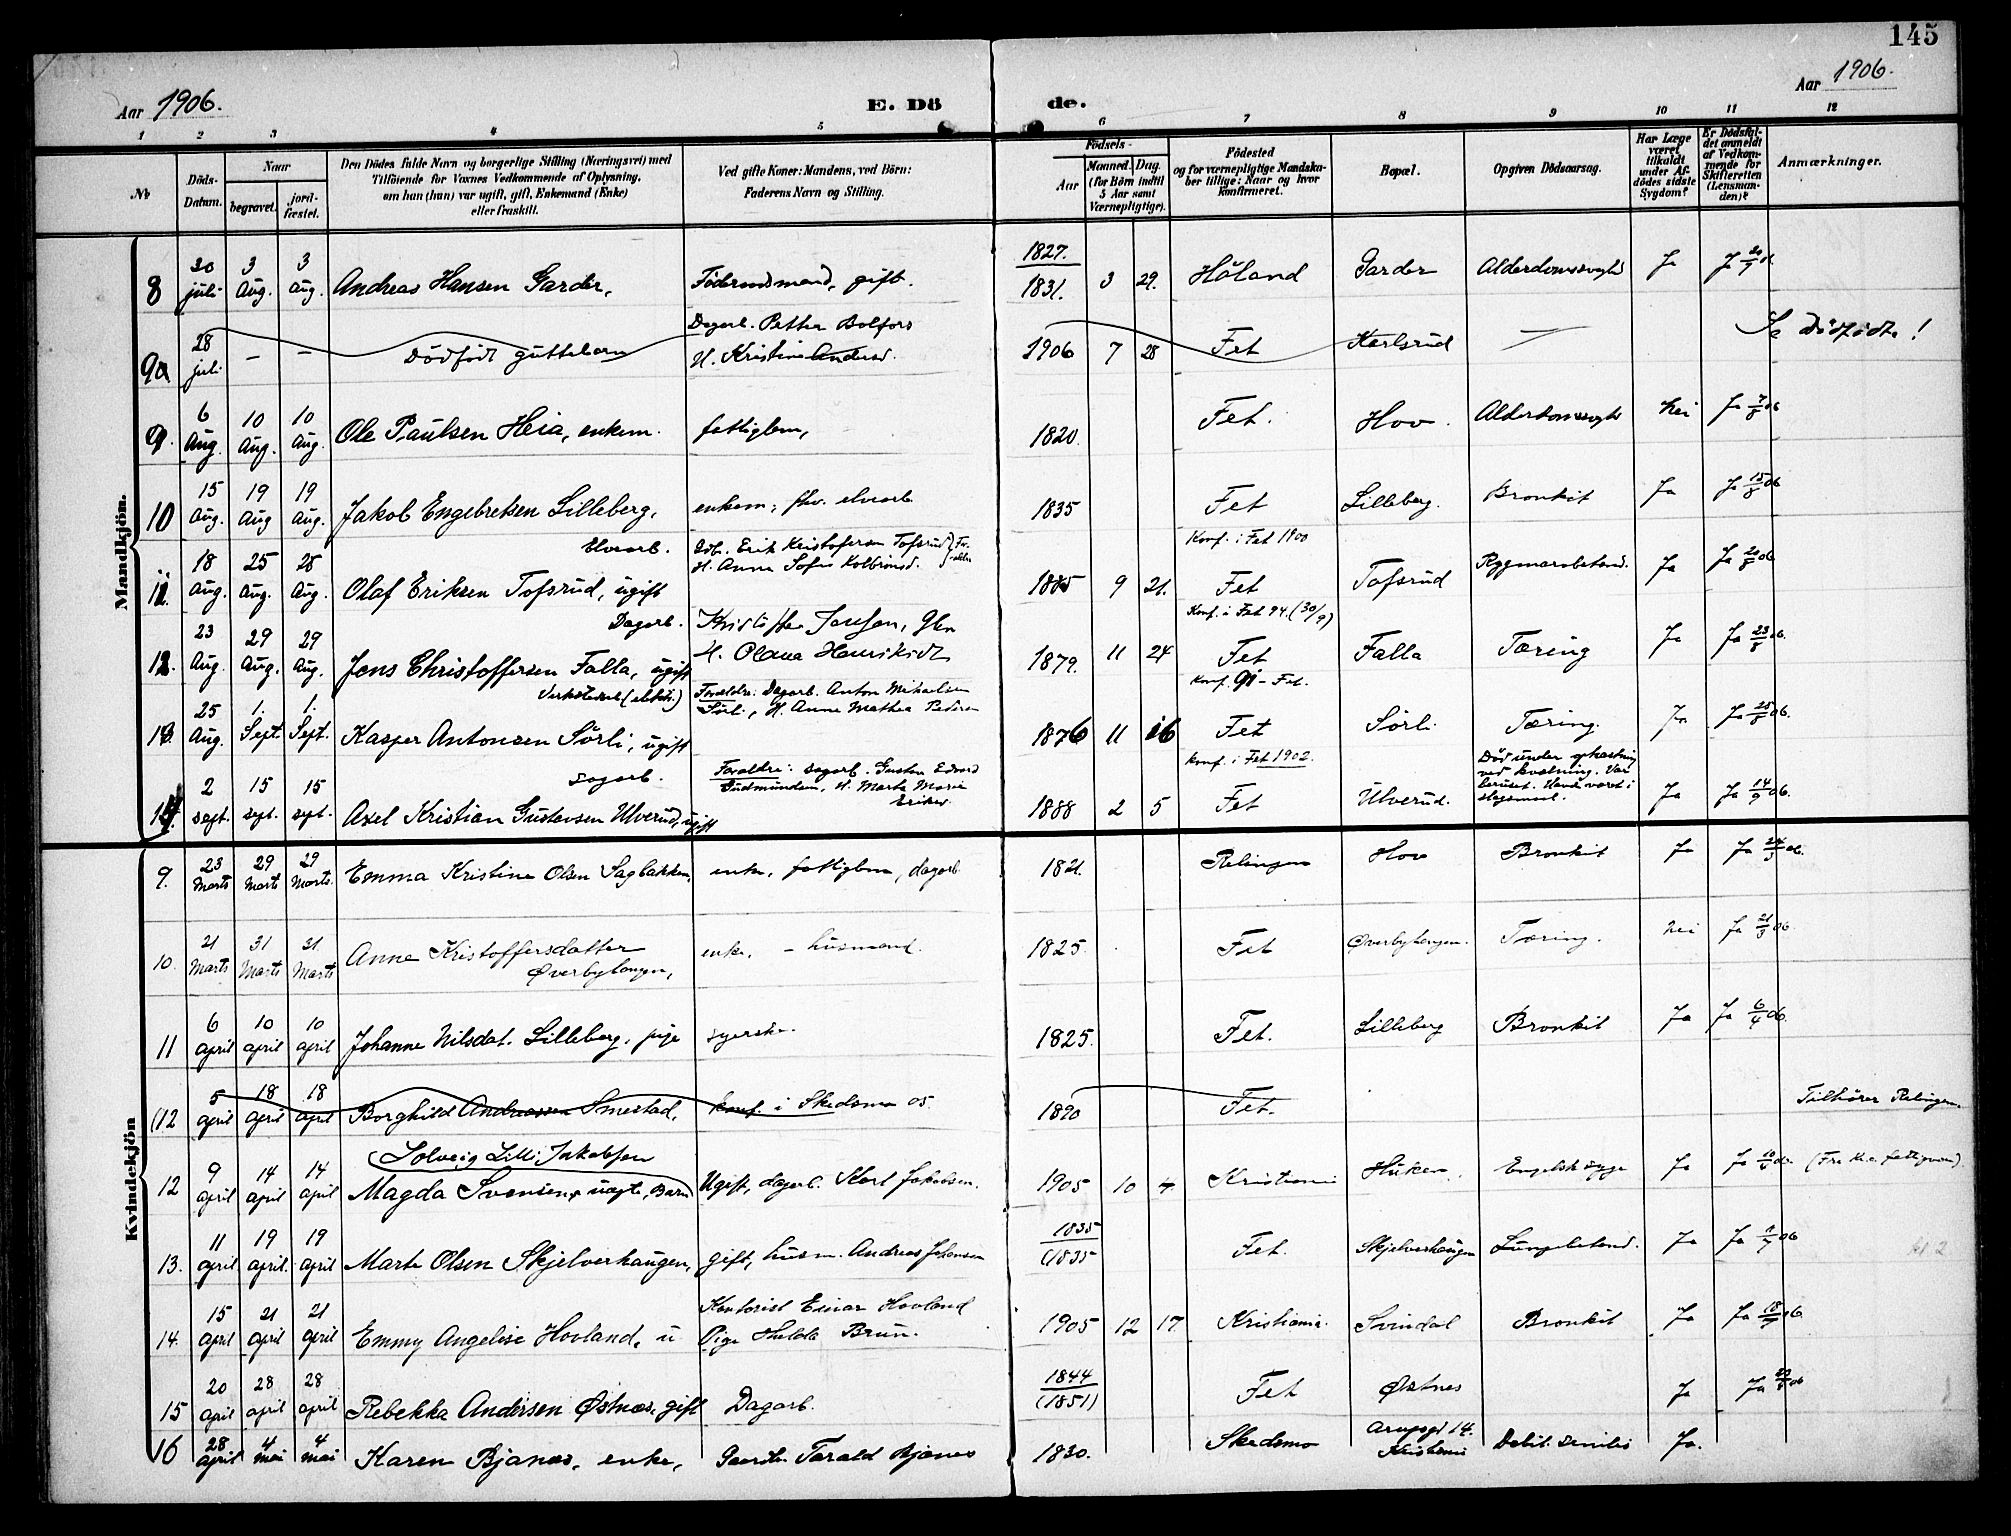 145
Aar 1906.
E. Dö de.
Aar 1906.
1 2 3 4 5 6 7 8 9 10 11 12
No
Döds-Datum.
Naar
begravet.
jordfæstet.
Den Dödes fulde Navn og borgerlige Stilling (Næringsvei) med
Tilföiende for Voxnes Vedkommende af Oplysning,
om han (hun) var ugift, gift, Enkemand (Enke)
eller fraskilt.
Ved gifte Koner: Mandens, ved Börn:
Faderens Navn og Stilling.
Födsels-
Aar
Maaned. Dag.
(for Börn indtil
5 Aar samt
Værnepligtige).
Födested
og for værnepligtige Mandskaber tillige: Naar og hvor
konfirmeret.
Bopæl.
Opgiven Dödsaarsag.
Har Læge været tilkaldt under Afdödes sidste Sygdom?
Er Dödsfaldet anmeldt af Vedkommende for Skifteretten (Lensmanden)?
Anmærkninger.
Mandkjön.
8 30 juli 3 Aug. 3 aug. Andreas Hansen Garder, Föderaadsmand, gift. 1827. 1831. 3 29. Höland Garder Alderdomssvaghed Ja Ja
9a 28 juli – – Dödfödt guttebarn Dagarb. Petter Bolfors
H. Kristine Andersd. 1906 7 28 Fet Karlsrud — Se Dödfödte!
9. 6 Aug. 10 Aug. 10 Aug. Ole Paulsen Heia, enkem. fattiglem, 1820. Fet. Hov. Alderdomssvagh nei Ja 7/8 06
10 15 Aug. 19 Aug 19 Aug. Jakob Engebretsen Lilleberg, enkem, fhv. elvearb. 1835 Fet Lilleberg. Bronkit Ja Ja 15/8 06
11. 18 Aug. 25 Aug. 25 Aug. Elvearb.
Olaf Eriksen Tofsrud, ugift Erik Kristofersen Tofsrud
H. Anna Sofie 1885 9 21. Konf. i Fet 1900
Fet Tofsrud Rygmarvsbetænd. Ja Ja 20/8 06
12. 23 Aug. 29 Aug. 29 Aug. Dagarb.
Jens Christoffersen Falla, ugift Kristoffer
H. Olava 1879. 11 24 Konf. i Fet 94. (30/9)
Fet Falla Tæring Ja Ja 23/8 06.
13. 25 Aug. 1. Sept. 1. Sept. Kasper Antonsen Sörli, ugift Forældre: Dagarb. Anton Mikaelsen
Sörli, H. Anne Mathea Pedersen 1876 11 16 konf. 91 – Fet.
Fet Sörli Tæring. Ja Ja 25/8 06.
14. 2 sept. 15 sept. 15 sept. Sagarb.
Axel Kristian Gustavsen Ulverud, ugift Forældre: Sagarb. Gustav Edvard
Gudmundsen, H. Marte Marie
Eriksd. 1888 2 5 konf. i Fet 1902.
Fet Ulverud. Död under opkastning
ved kvælning. Var
beruset. Havde været i
slagsmaal. Ja Ja 14/9 06.
Kvindekjön
9. 23 Marts 29 Marts 29 Marts. Emma Kristine Olsen Sagbakken, enke, fattiglem, dagarb. 1821. Relingen Hov Bronkit Ja Ja 24/3 06.
10. 21 Marts 31 Marts 31 Marts Anne Kristoffersdatter
Øverbyhaugen, enke, – husmand. 1825. Fet Øverbyhaugen. Tæring. nei Ja 21/3 06.
11 6 april 10 april 10 april Johanne Nilsdat. Lilleberg, pige syerske. 1825. Fet. Lilleberg Bronkit Ja Ja 6/4 06.
(12 5 april 18 april 18 april Borghild Andreassen Smestad, konf. i Skedsmo 05. 1890 Fet. Tilhörer Relingen.
12 9 april 14 april 14 april Solveig Lilli Jakobsen
Magda Svensens uægte Barn Ugift, dagarb. Karl Jakobsen. 1905 10 4. Kristiania Huken Engelsk syge Ja Ja (Fra Kr.a fattigvæsen)
13. 11 april 19 april. 19 april Marte Olsen Skjelverhaugen, gift, husm. Andreas Johansen 1835
(1835 Fet. Skjelverhaugen Lungebetænd. Ja Ja
14. 15 april 21 april 21 april Emmy Angelise Hovland, u Kontorist Einar Hovland
Pige Hulda Brun. 1905 12 17 Kristiania. Svindal Bronkit Ja Ja
15 20 april 28 april 28 april Rebekka Andersen Østnes, gift Dagarb. 1844
(1851) Fet Østnes Ja Ja
16 28 april 4 mai 4 mai Karen Bjanes, enke, Gaardbr. Tarald Bjanes 1830. Skedsmo 14.
Kristiania Debil. senilis Ja.